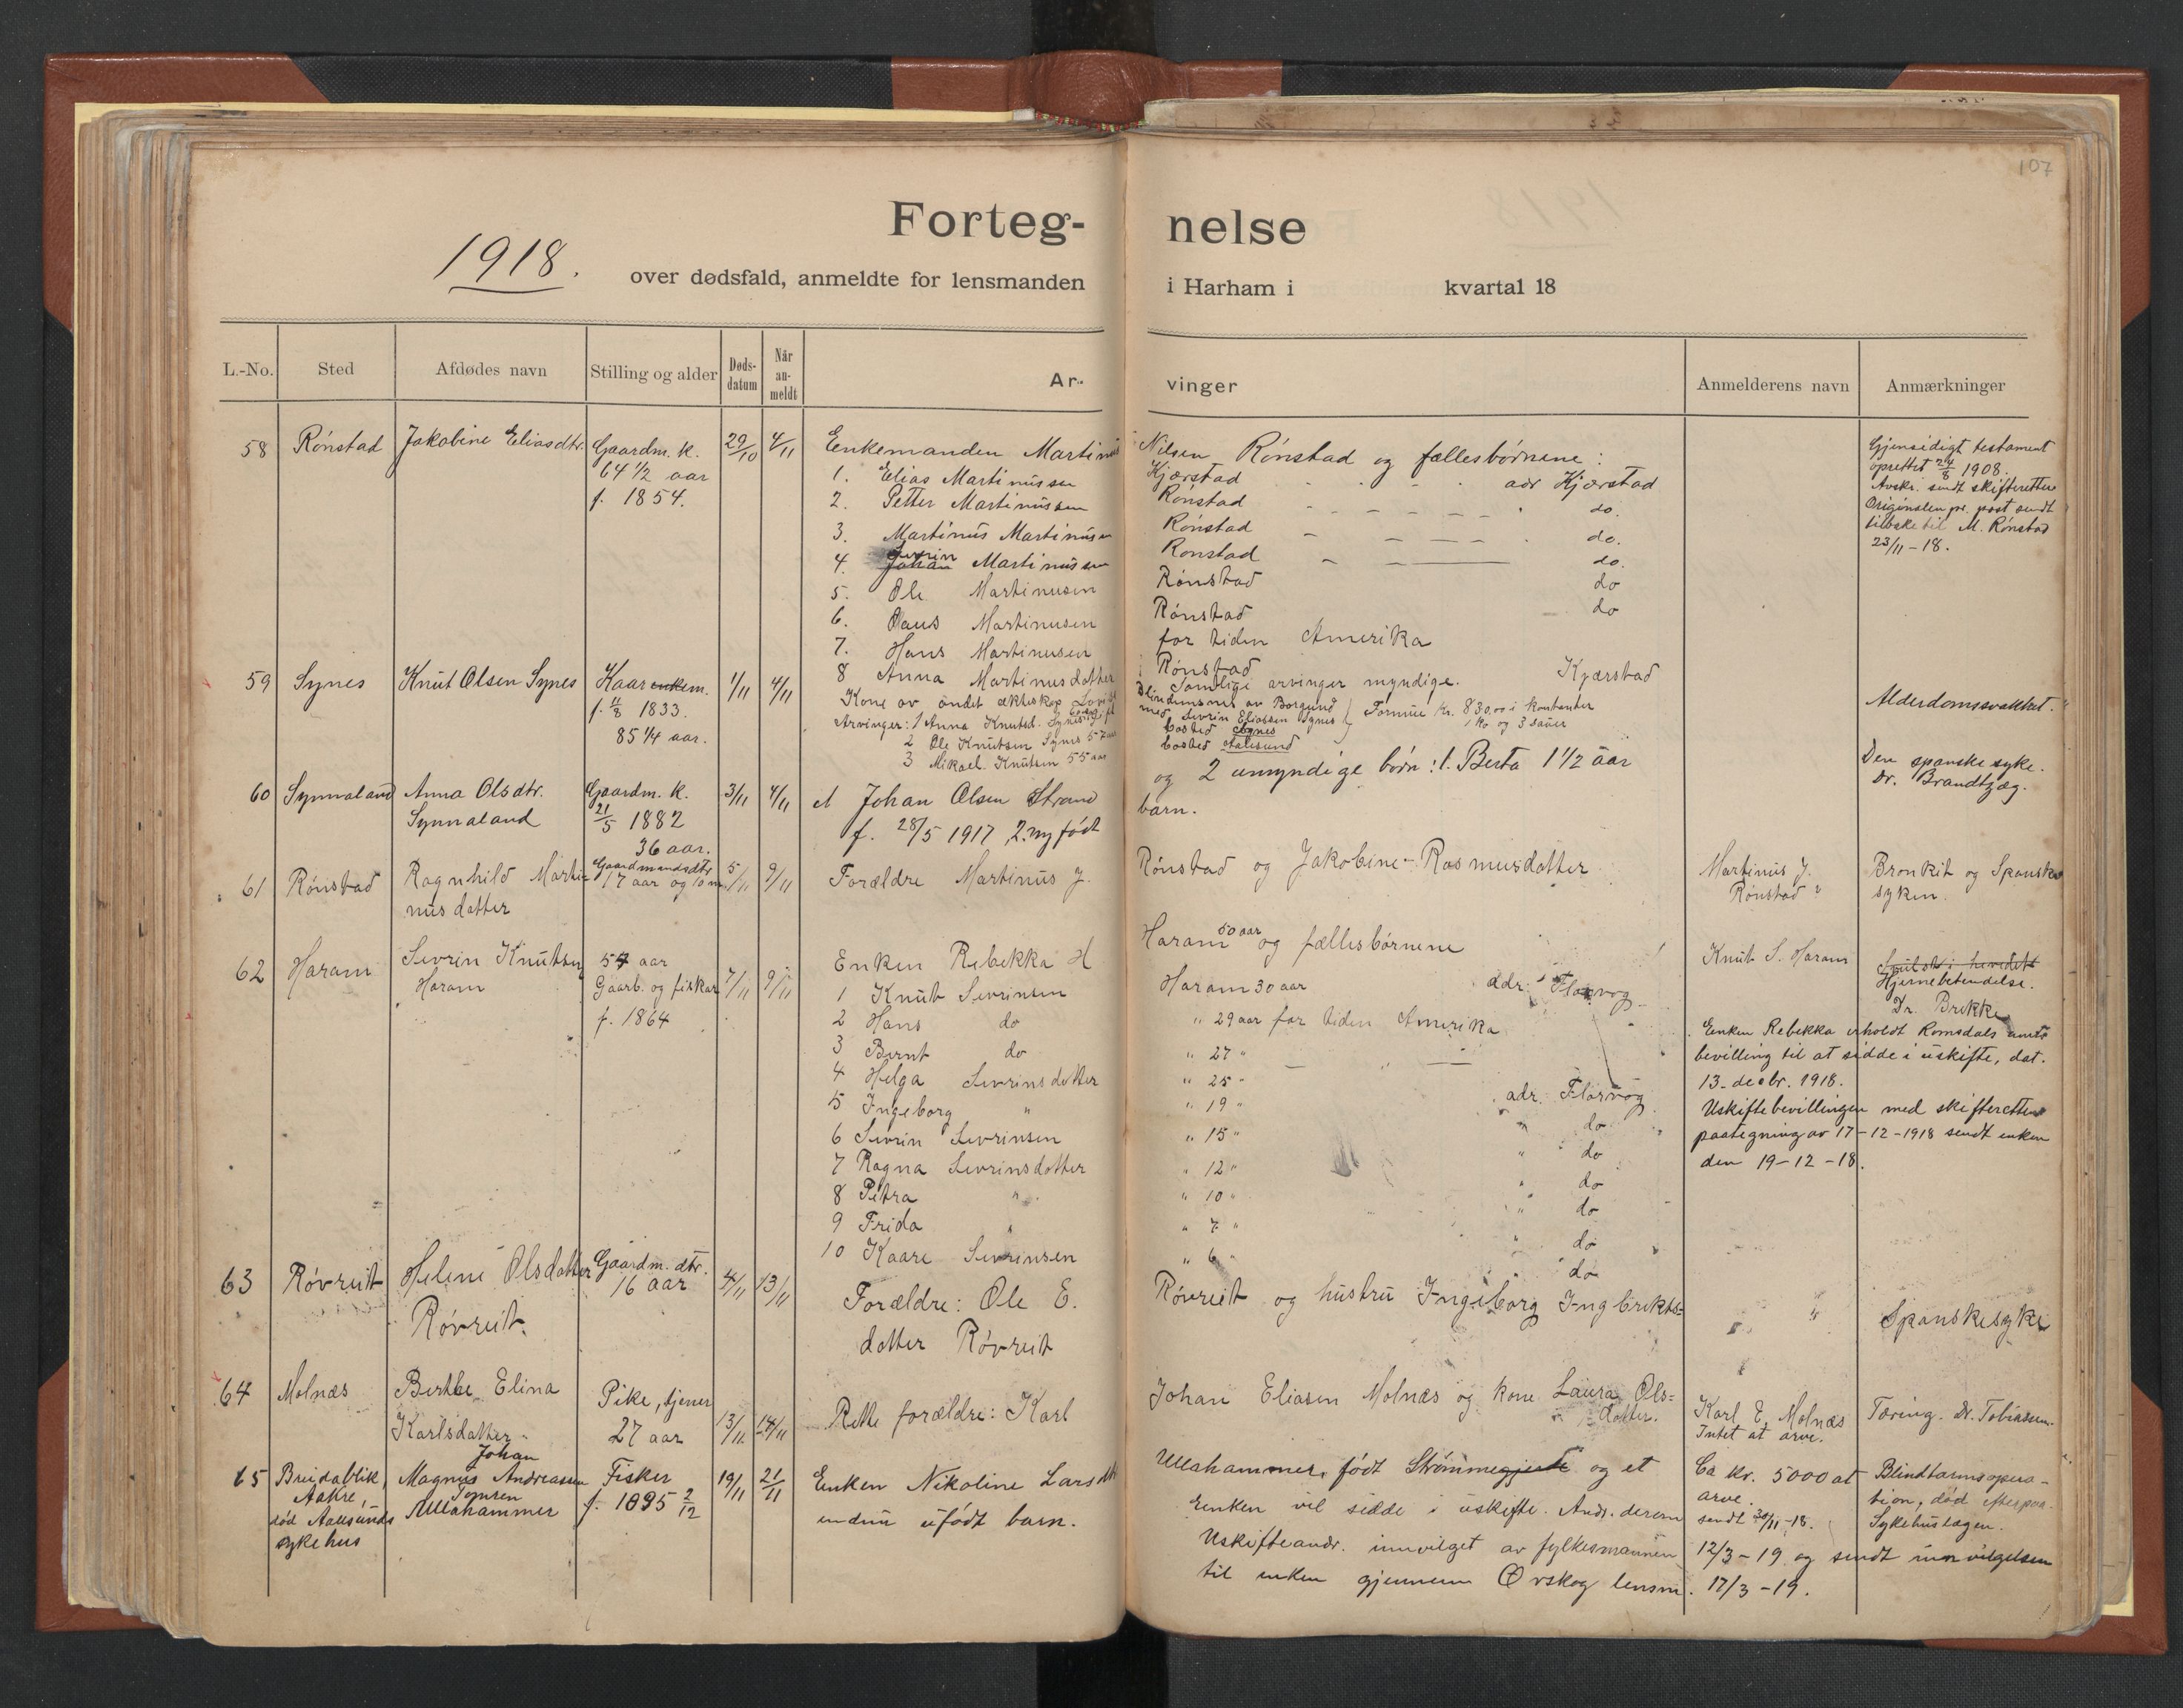 107
Forteg- nelse
1918.
over dødsfald, anmeldte for lensmanden i Harham i kvartal 18
L.-No. Sted Afdødes navn Stilling og alder Døds-datum Når an-meldt Ar- vinger Anmelderens navn Anmærkninger
58 Rønstad Jakobine Eliasdtr. Gaardm. k. 29/10 4/11 Enkemanden Martinus Nilsen Rønstad og fællesbørnene:
64 1/2 aar
f. 1854.
1. Elias Martinussen Kjærstad adr Kjærstad
2. Petter Martinussen Rønstad do.
3. Martinus Martinusen Rønstad do.
4. Sevrin Johan Martinussen Rønstad do.
5. Ole Martinusen Rønstad do
6. Olaus Martinusen Rønstad do
7. Hans Martinusen for tiden Amerika
8 Anna Martinusdatter Rønstad Kjærstad
Samtlige arvinger myndige.
Gjensidigt testament
oprettet 24/8 1908.
Avskr. sendt skifteretten
Originalen pr. post sendt
tilbake til M. Rønstad
23/11-18.
59 Synes Knut Olsen Synes Kaarenkem. 1/11 4/11
f. 11/8 1833.
85 1/4 aar.
Kone av andet ækteskap
Arvinger: 1 Anna Knutsd. Synes gift med Sevrin Eliassen Synes
2 Ole Knutsen Synes 57 aar bosted Synes
3 Mikael Knutsen 55 aar bosted Aalesund
Formue kr. 830,00 i kontanter
1 ko og 3 sauer
Alderdomssvakhet.
60 Synnaland Anna Olsdtr. Gaardm. k. 3/11 4/11 Johan Olsen Strand og 2 umyndige børn: 1. Berta 1 1/2 aar
Synnaland 21/5 1882 f. 28/5 1917, 2. nyfødt barn.
36 aar.
Den spanske syke.
Dr. Brandtzæg.
61 Rønstad Ragnhild Marti- Gaardmandsdtr. 5/11 9/11 Forældre Martinus J. Rønstad og Jakobine Rasmusdatter Martinus J. Bronkit og Spanske
nusdatter 17 aar og 10 m. Rønstad syken.
62 Haram Sevrin Knutsen 54 aar 7/11 9/11 Enken Rebekka H Haram 50 aar og fællesbørnene Knut S. Haram
Haram Gaarb. og fisker
f. 1864
1 Knut Sevrinsen Haram 30 aar adr. Flarvog
2 Hans do " 29 aar for tiden Amerika
3 Bernt do " 27 "
4 Helga Sevrinsdatter " 25 "
5 Ingeborg " " 19 " adr. Flarvog
6 Sevrin Sevrinsen " 15 " " do
7 Ragna Sevrinsdatter " 12 " " do
8 Petra " " 10 " " do
9 Frida " " 7 " " do
10 Kaare Sevrinsen " 6 " do
Hjernebetendelse.
Dr. Brekke
Enken Rebekka erholdt Romsdals amts
bevilling til at sidde i uskifte, dat.
13. decbr. 1918.
Uskiftebevillingen med skifterettens
paategning av 17-12-1918 sendt enken
den 19-12-18.
63 Røvreit Helene Olsdatter Gaardm. dtr. 4/11 13/11 Forældre: Ole E. Røvreit og hustru Ingeborg Ingbrikts- Spanskesyke
Røvreit. 16 aar datter Røvreit
64 Molnæs Berthe Elina Pike, tjener 13/11 14/11 Rette forældre: Karl Johan Eliasen Molnæs og kone Laura Ols- Karl E. Molnæs Tæring. Dr. Tobiassen.
Karlsdatter 27 aar datter. Intet at arve.
65 Breidablik, Magnus Johan Andreassen Fisker 19/11 21/11 Enken Nikoline Larsdtr. Ullahammer, født Strømmegjerde og et Ca kr. 5000 at Blindtarmsopera-
Aakre, Ullahammer f. 1895 2/12 endnu ufødt barn. arve. tion, død
død Aalesunds
sykehus
Enken vil sidde i uskifte. Andr. derom sendt 30/11-18. Sykehuslægen.
Uskifteandr. innvilget av fylkesmannen 12/3-19 og sendt innvilgelsen
til enken gjennem Ørskog lensm. 17/3-19.